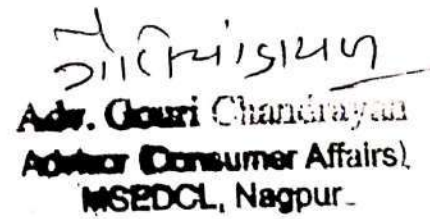 Adv. Gouri Chandrayan
Advisor (Consumer Affairs)
MSEDCL, Nagpur